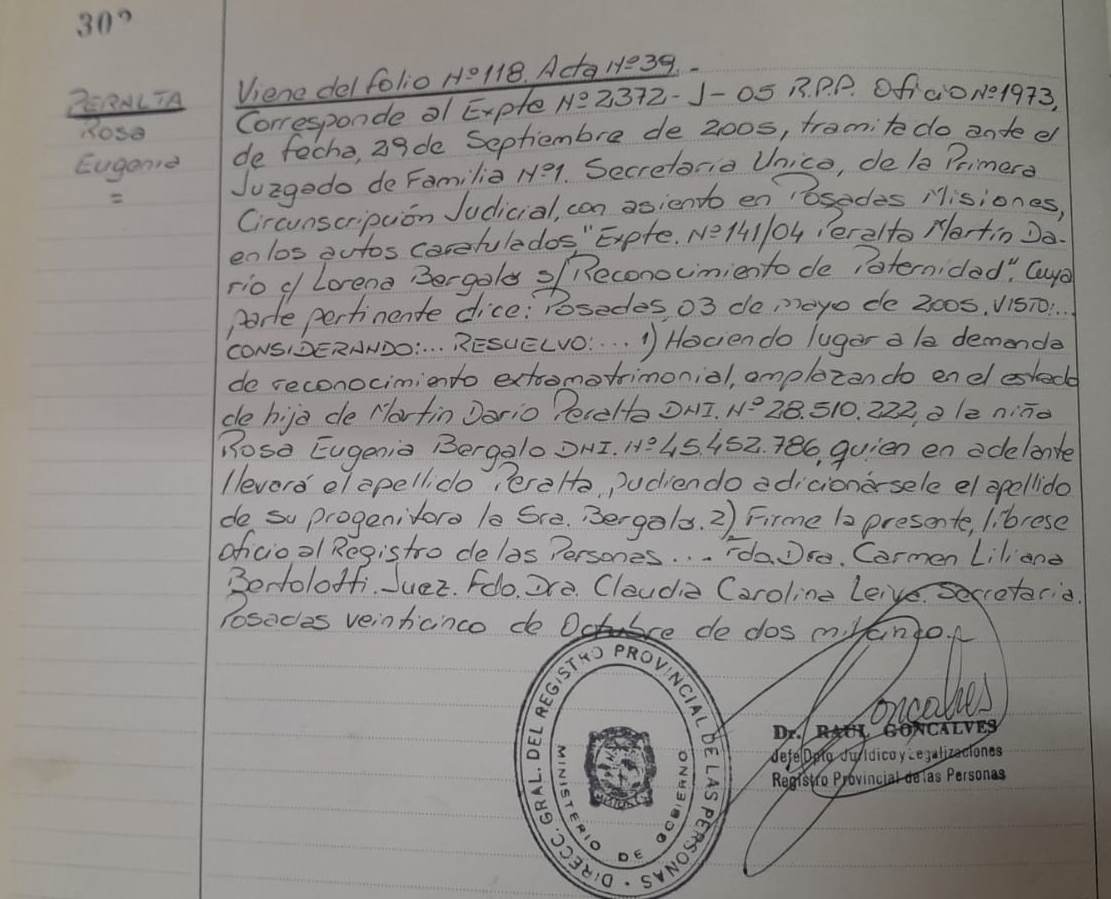 30º
PERALTA
Rosa
Eugenia
=
Viene del folio Nº 118. Acta Nº 39.-
Corresponde al Expte Nº 2372-J-05 R.P.P. Oficio Nº 1973,
de fecha, 29 de Septiembre de 2005, tramitado ante el
Juzgado de Familia Nº 1. Secretaria Unica, de la Primera
Circunscripción Judicial, con asiento en Posadas Misiones,
en los autos caratulados, "Expte. Nº 141/04 Peralta Martín Da-
rio c/ Lorena Bergalo s/ Reconocimiento de Paternidad". Cuya
parte pertinente dice: Posadas, 03 de mayo de 2005. VISTO:...
CONSIDERANDO:... RESUELVO:... 1) Haciendo lugar a la demanda
de reconocimiento extramatrimonial, emplazando en el estado
de hija de Martin Dario Peralta DNI. Nº 28.510.222, a la niña
Rosa Eugenia Bergalo DNI. Nº 45.452.786, quien en adelante
llevará el apellido Peralta, pudiendo adicionársele el apellido
de su progenitora la Sra. Bergalo. 2) Firme la presente, líbrese
oficio al Registro de las Personas... Fda. Dra. Carmen Liliana
Bertolotti. Juez. Fdo. Dra. Claudia Carolina Leiva. Secretaria.
Posadas veinticinco de Octubre de dos mil cinco.
DIRECC. GRAL. DEL REGISTRO PROVINCIAL DE LAS PERSONAS
MINISTERIO DE GOBIERNO
Goncalves
Dr. RAUL GONCALVES
Jefe Dpto Jurídico y Legalizaciones
Registro Provincial de las Personas